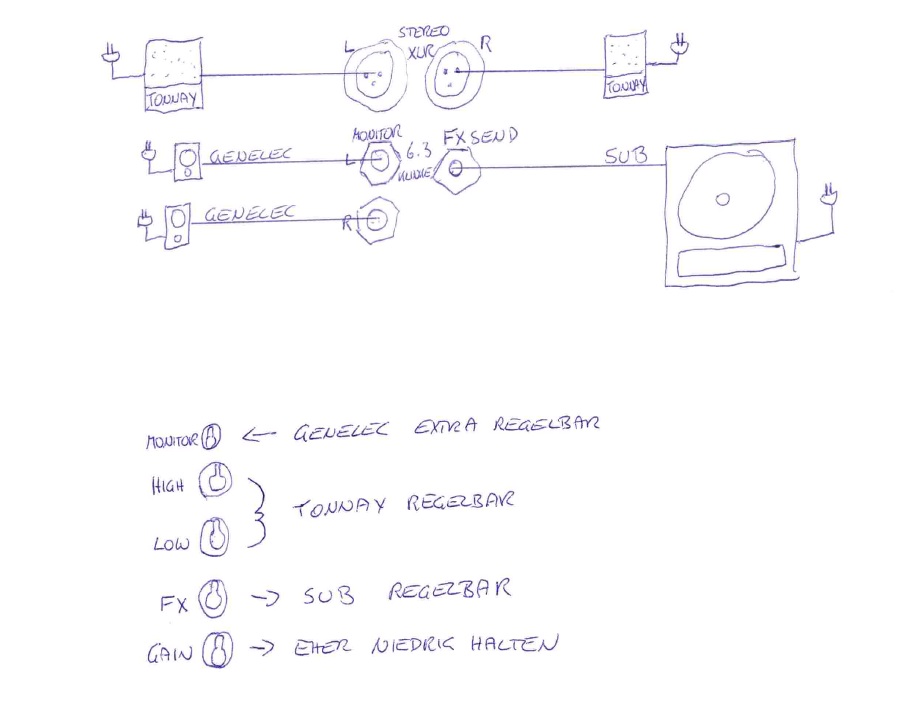 STEREO
L XLR R
TONNAY TONNAY
MONITOR 6.3 FX SEND
GENELEC L KLINKE SUB
GENELEC R
MONITOR ← GENELEC EXTRA REGELBAR
HIGH
TONNAY REGELBAR
LOW
FX → SUB REGELBAR
GAIN → EHER NIEDRIG HALTEN